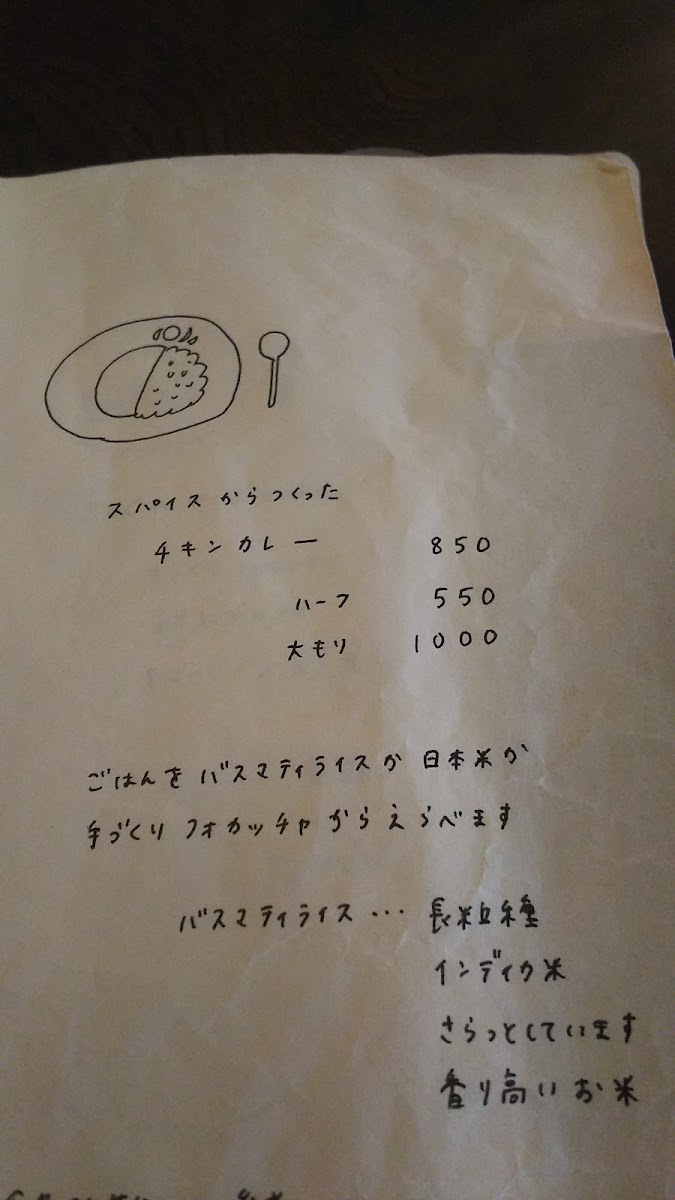 スパイスからつくった
チキンカレー 850
ハーフ 550
大もり 1000
ごはんを バスマティライスか 日本米か
手づくり フォカッチャ からえらべます
バスマティライス ・・・ 長粒種
インディカ米
さらっとしています
香り高い お米